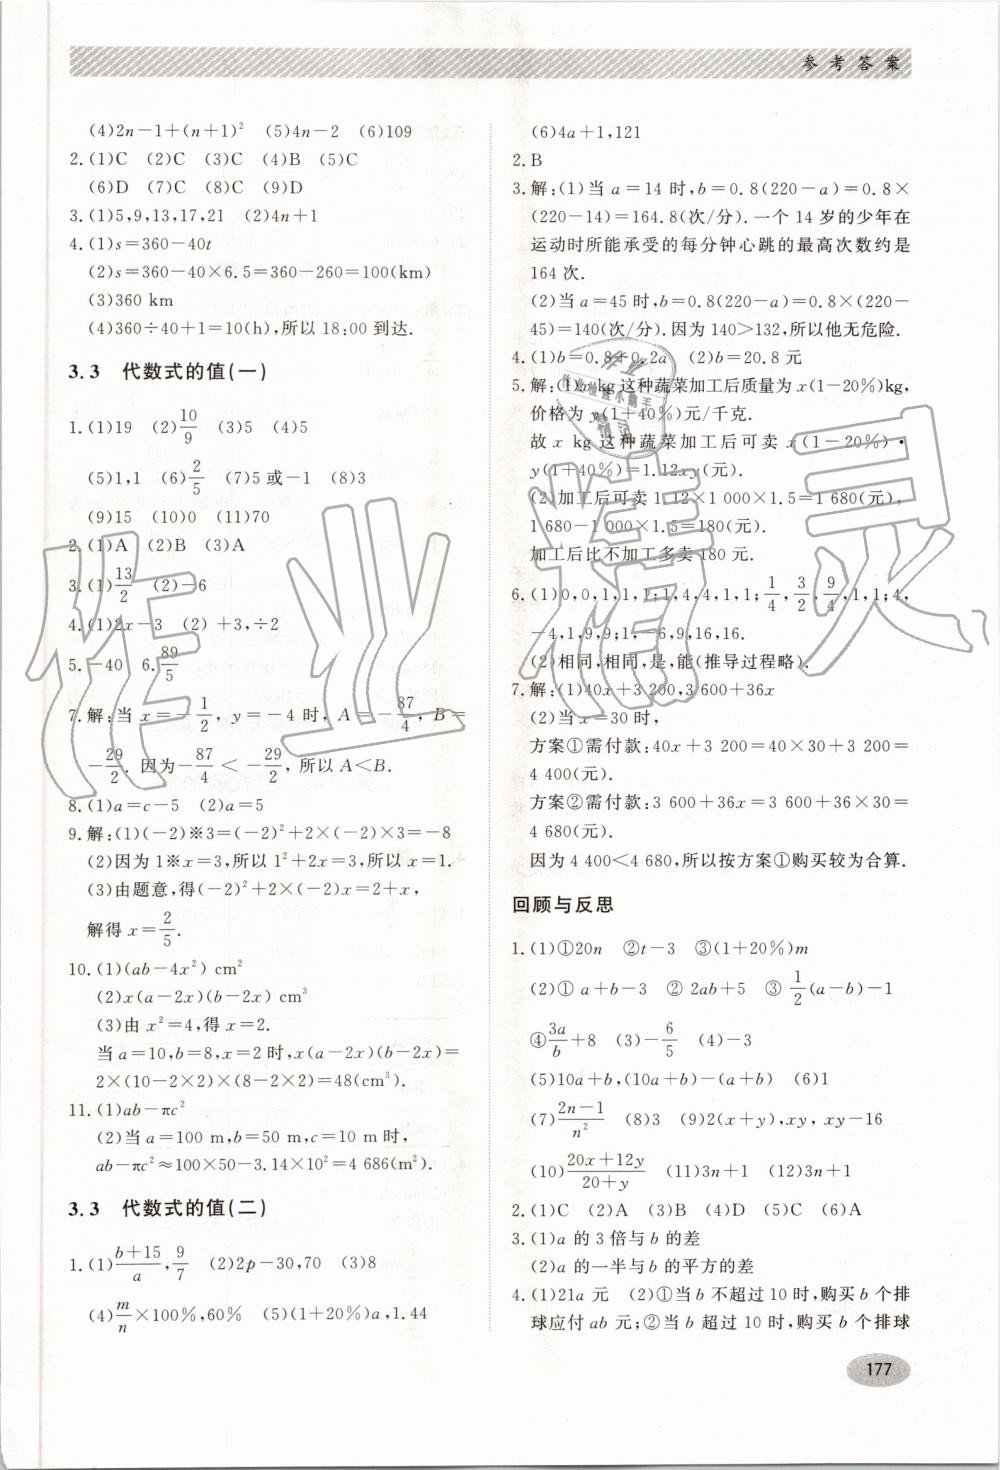 参考答案
(4)2n－1＋(n＋1)² (5)4n－2 (6)109
2.(1)C (2)C (3)C (4)B (5)C
(6)D (7)C (8)C (9)D
3.(1)5,9,13,17,21 (2)4n＋1
4.(1)s＝360－40t
(2)s＝360－40×6.5＝360－260＝100(km)
(3)360 km
(4)360÷40＋1＝10(h),所以 18:00 到达.
3.3 代数式的值(一)
1.(1)19 (2)10/9 (3)5 (4)5
(5)1,1 (6)2/5 (7)5 或－1 (8)3
(9)15 (10)0 (11)70
2.(1)A (2)B (3)A
3.(1)13/2 (2)－6
4.(1)2x－3 (2)＋3,÷2
5.－40 6.89/5
7.解:当 x＝－1/2, y＝－4 时, A＝－87/4, B＝
－29/2. 因为－87/4＜－29/2,所以 A＜B.
8.(1)a＝c－5 (2)a＝5
9.解:(1)(－2)※3＝(－2)²＋2×(－2)×3＝－8
(2)因为 1※x＝3,所以 1²＋2x＝3,所以 x＝1.
(3)由题意,得(－2)²＋2×(－2)x＝2＋x,
解得 x＝2/5.
10.(1)(ab－4x²) cm²
(2)x(a－2x)(b－2x) cm³
(3)由 x²＝4,得 x＝2.
当 a＝10,b＝8,x＝2 时,x(a－2x)(b－2x)＝
2×(10－2×2)×(8－2×2)＝48(cm³).
11.(1)ab－πc²
(2)当 a＝100 m,b＝50 m,c＝10 m 时,
ab－πc²≈100×50－3.14×10²＝4 686(m²).
3.3 代数式的值(二)
1.(1)b＋15/a,9/7 (2)2p－30,70 (3)8
(4)m/n×100%,60% (5)(1＋20%)a,1.44
(6)4a＋1,121
2.B
3.解:(1)当 a＝14 时,b＝0.8(220－a)＝0.8×
(220－14)＝164.8(次/分).一个 14 岁的少年在
运动时所能承受的每分钟心跳的最高次数约是
164 次.
(2)当 a＝45 时,b＝0.8(220－a)＝0.8×(220－
45)＝140(次/分).因为 140＞132,所以他无危险.
4.(1)b＝0.8＋0.2a (2)b＝20.8 元
5.解:(1)x kg 这种蔬菜加工后质量为 x(1－20%)kg,
价格为 y(1＋40%)元/千克.
故 x kg 这种蔬菜加工后可卖 x(1－20%)·
y(1＋40%)＝1.12xy(元).
(2)加工后可卖 1.12×1 000×1.5＝1 680(元),
1 680－1 000×1.5＝180(元).
加工后比不加工多卖 180 元.
6.(1)0,0,1,1,1;1,4,4,1,1,1;1/4,3/2,9/4,1,1;4,
－4,1,9,9;1,－6,9,16,16.
(2)相同,相同,是,能(推导过程略).
7.解:(1)40x＋3 200,3 600＋36x
(2)当 x＝30 时,
方案①需付款:40x＋3 200＝40×30＋3 200＝
4 400(元).
方案②需付款:3 600＋36x＝3 600＋36×30＝
4 680(元).
因为 4 400＜4 680,所以按方案①购买较为合算.
回顾与反思
1.(1)①20n ②t－3 ③(1＋20%)m
(2)① a＋b－3 ② 2ab＋5 ③ 1/2(a－b)－1
④3a/b＋8 (3)－6/5 (4)－3
(5)10a＋b,(10b＋a)－(10a＋b) (6)1
(7)2n－1/n² (8)3 (9)2(x＋y),xy, xy－16
(10)20x＋12y/20＋y (11)3n＋1 (12)3n＋1
2.(1)C (2)A (3)B (4)D (5)C (6)A
3.(1)a 的 3 倍与 b 的差
(2)a 的一半与 b 的平方的差
4.(1)21a 元 (2)①当 b 不超过 10 时,购买 b 个排
球应付 ab 元;②当 b 超过 10 时,购买 b 个排球
177
作业精灵